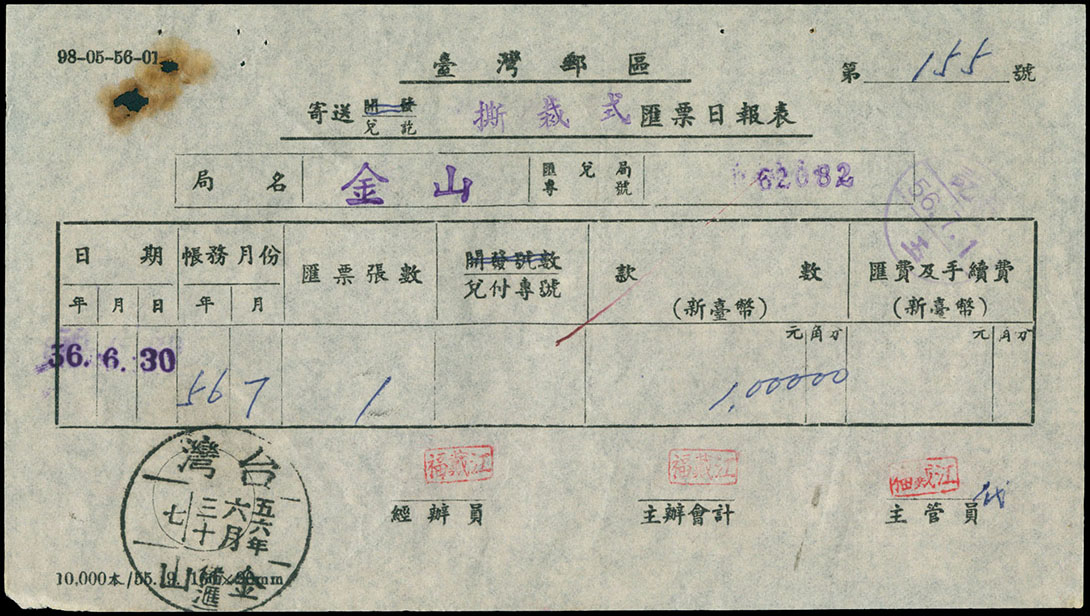 98-05-56-01
臺灣郵區
第 155 號
寄送 開發 撕裁式 匯票日報表
兌訖
局名 金山 匯兌局專號 62682
56.7.1
日期 帳務月份 匯票張數 開發號數 款數 匯費及手續費
年 月 日 年 月 兌付專號 (新臺幣) (新臺幣)
元 角 分 元 角 分
56.6.30 56 7 1 1,00000
江蔵福 江蔵福 江蔵福
經辦員 主辦會計 主管員 代
台灣
五六年
六月
三十
七
金山
儲匯
10,000本/55.9.